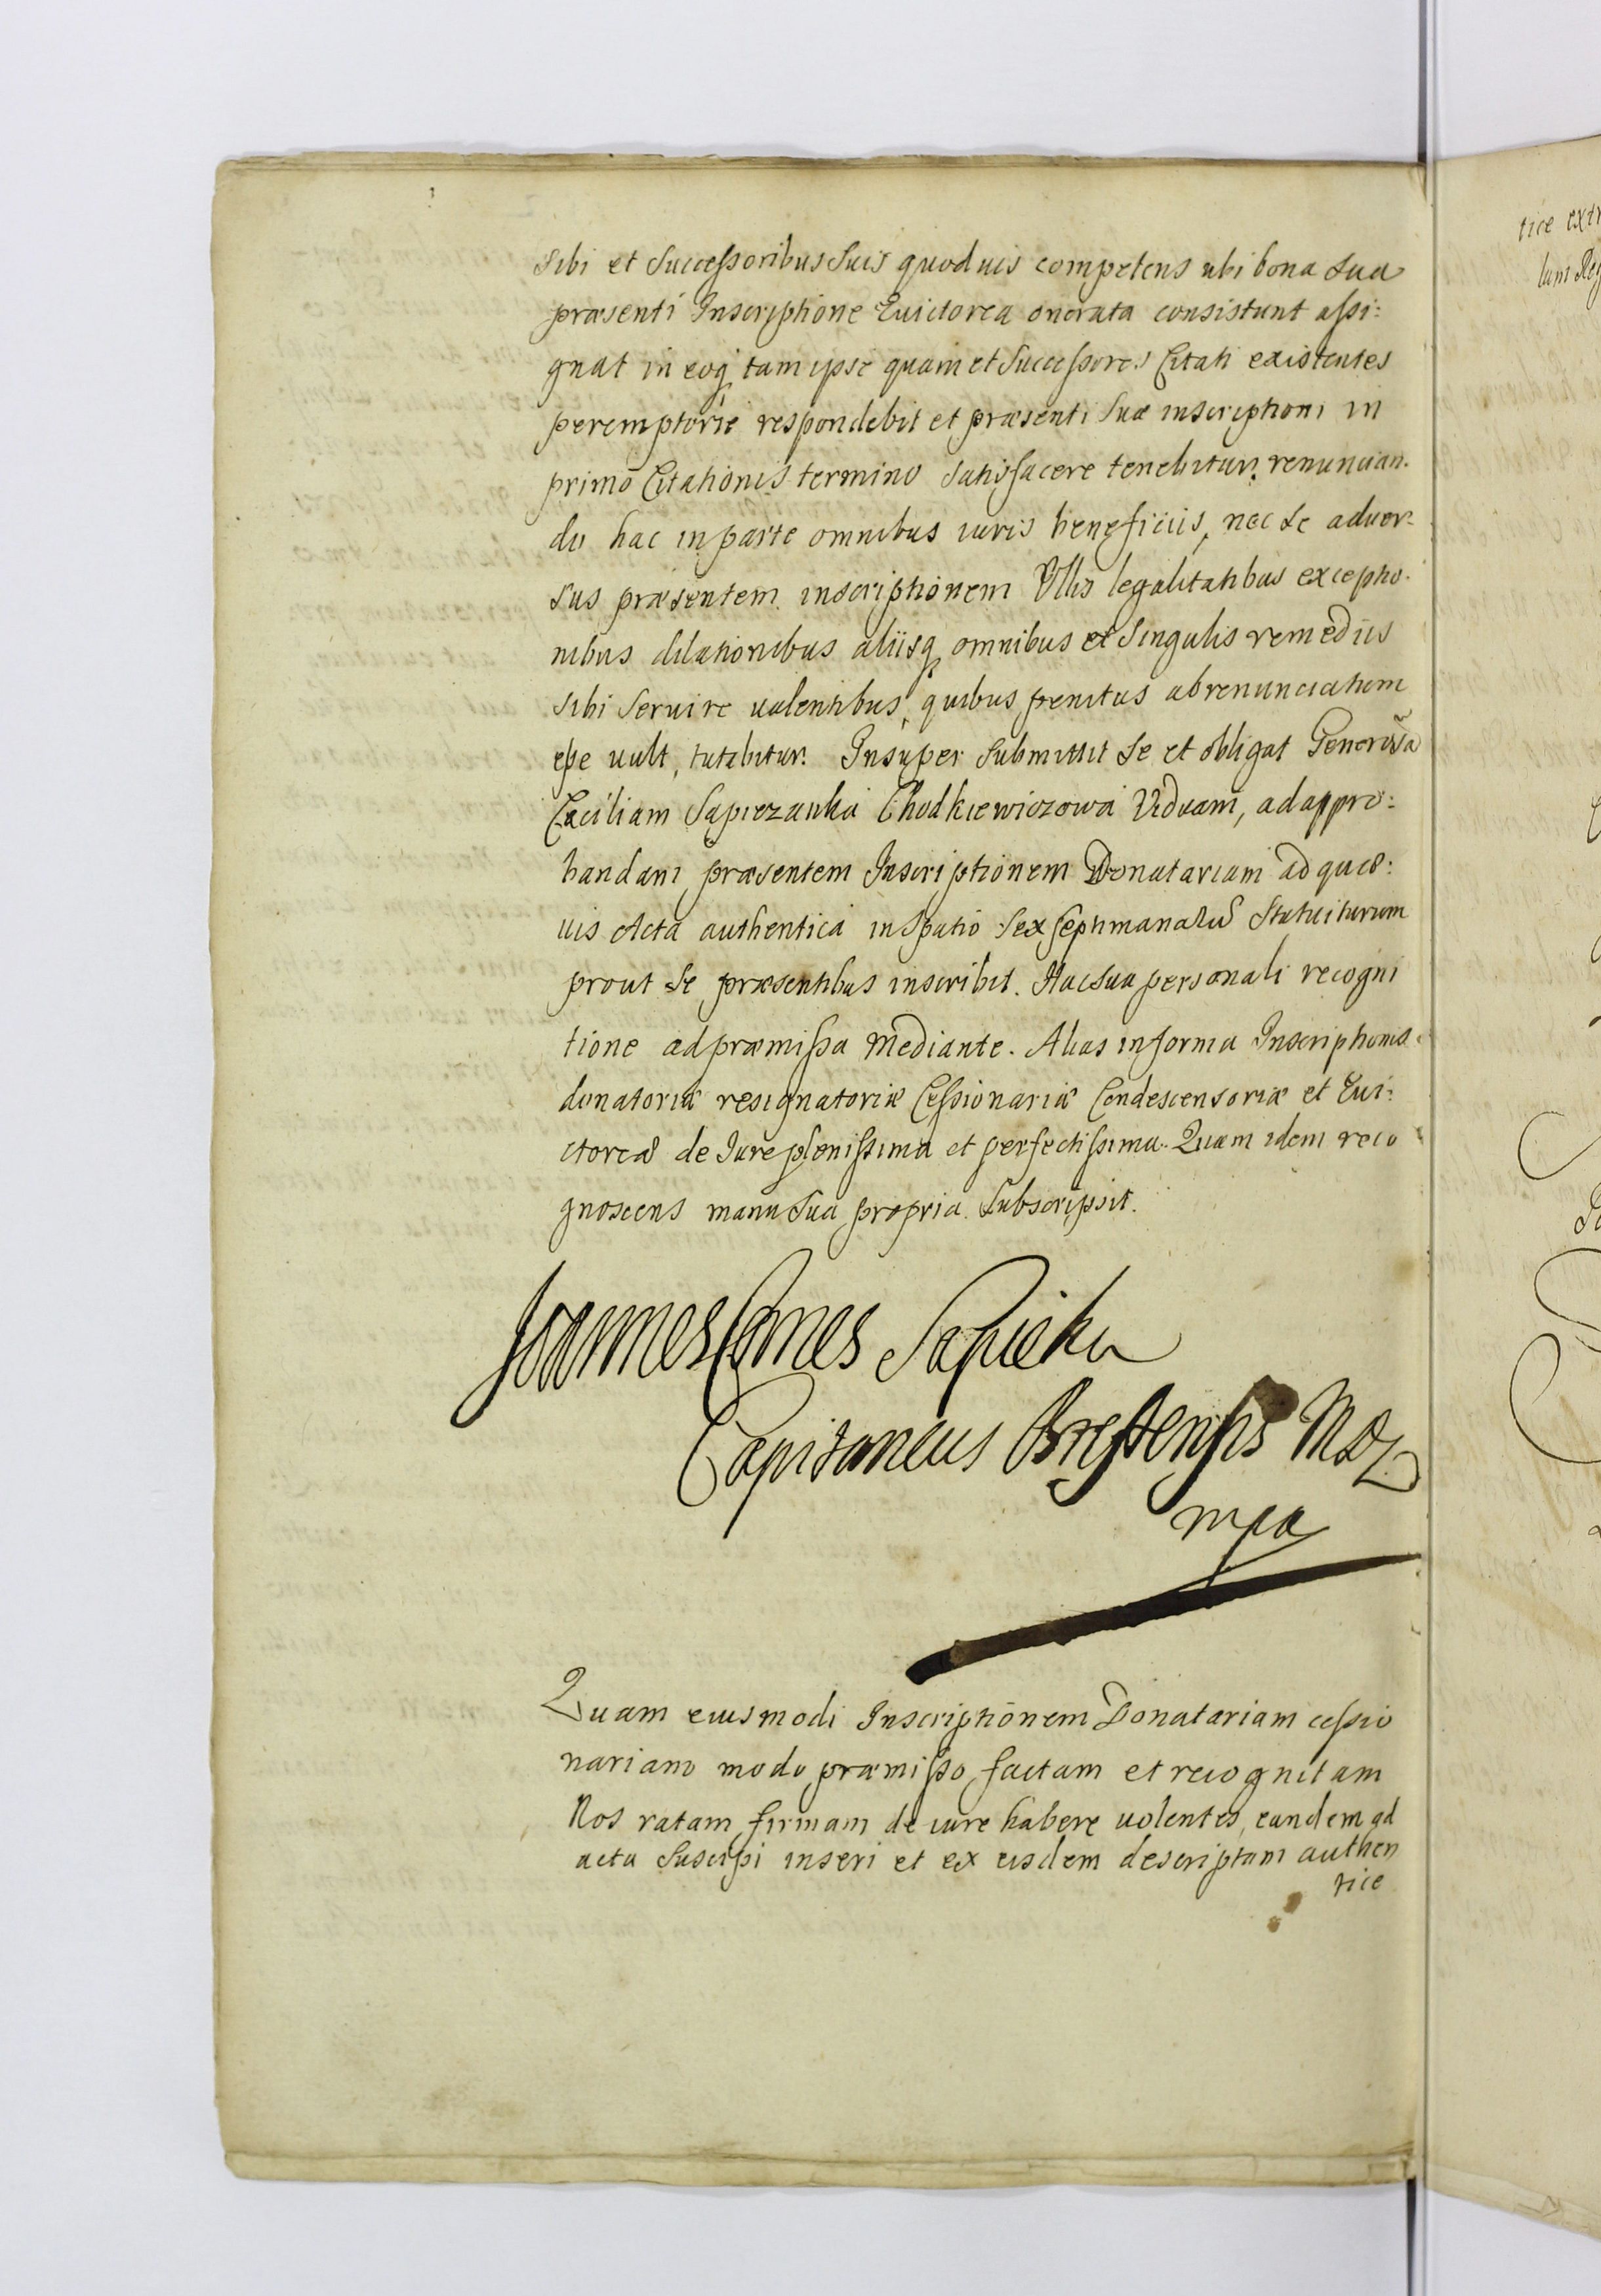 Sibi et Successoribus Suis quoduis competens ubi bona Sua
præsenti Inscriptione Euictorea onerata consistunt assi:
gnat in eoq tam ipse quam et Successores Citati existentes
peremptorie respondebit et præsenti Suæ inscriptioni in
primo Citationis termino Satisfacere tenebitur, renuncian.
do hac in parte omnibus iuris beneficiis, nec Se aduer:
sus præsentem inscriptionem Ullis legalitatibus exceptio.
nibus dilationibus aliisq omnibus et Singulis remediis
Sibi Seruire ualentibus, quibus penitus abrenunciatum
esse uult, tutabitur. Insuper Submittit Se et obligat Generosã
Cæciliam Sapiezanka Chodkiewiczowa Viduam, ad appro:
bandam præsentem Inscriptionem Donatariam ad quæ:
uis Acta authentica in Spatio Sex Septimanarũ Statuiturum
prout Se præsentibus inscribit. Hac Sua personali recogni
tione ad præmissa Mediante. Alias in forma Inscriptionis
donatoriæ resignatoriæ Cessionariæ Condescensoriæ et Eui:
ctoreæ de Jure plenissima et perfectissima. Quam idem reco
gnoscens manu Sua propria Subscripsit.
Joannes Comes Sapieha
Capitaneus Brestensis
mpa
Quam eiusmodi Inscriptionem Donatariam cessio
nariam modo præmisso factam et recognitam
Nos ratam firmam de iure habere uolentes, eandem ad
acta Suscipi inseri et ex eisdem descriptam authen
tice
tice extr